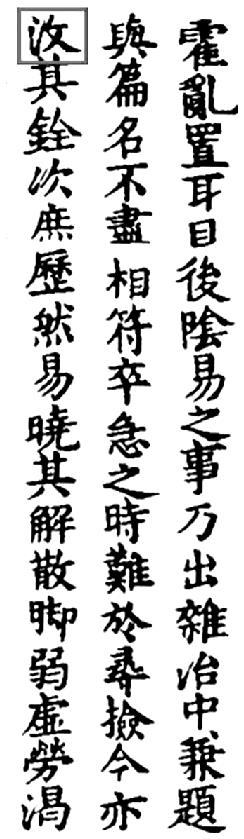 霍亂置耳目後陰易之事乃出雜治中兼題
與篇名不盡相符卒急之時難於尋撿今亦
改其銓次庶歷然易曉其解散脚弱虛勞渴